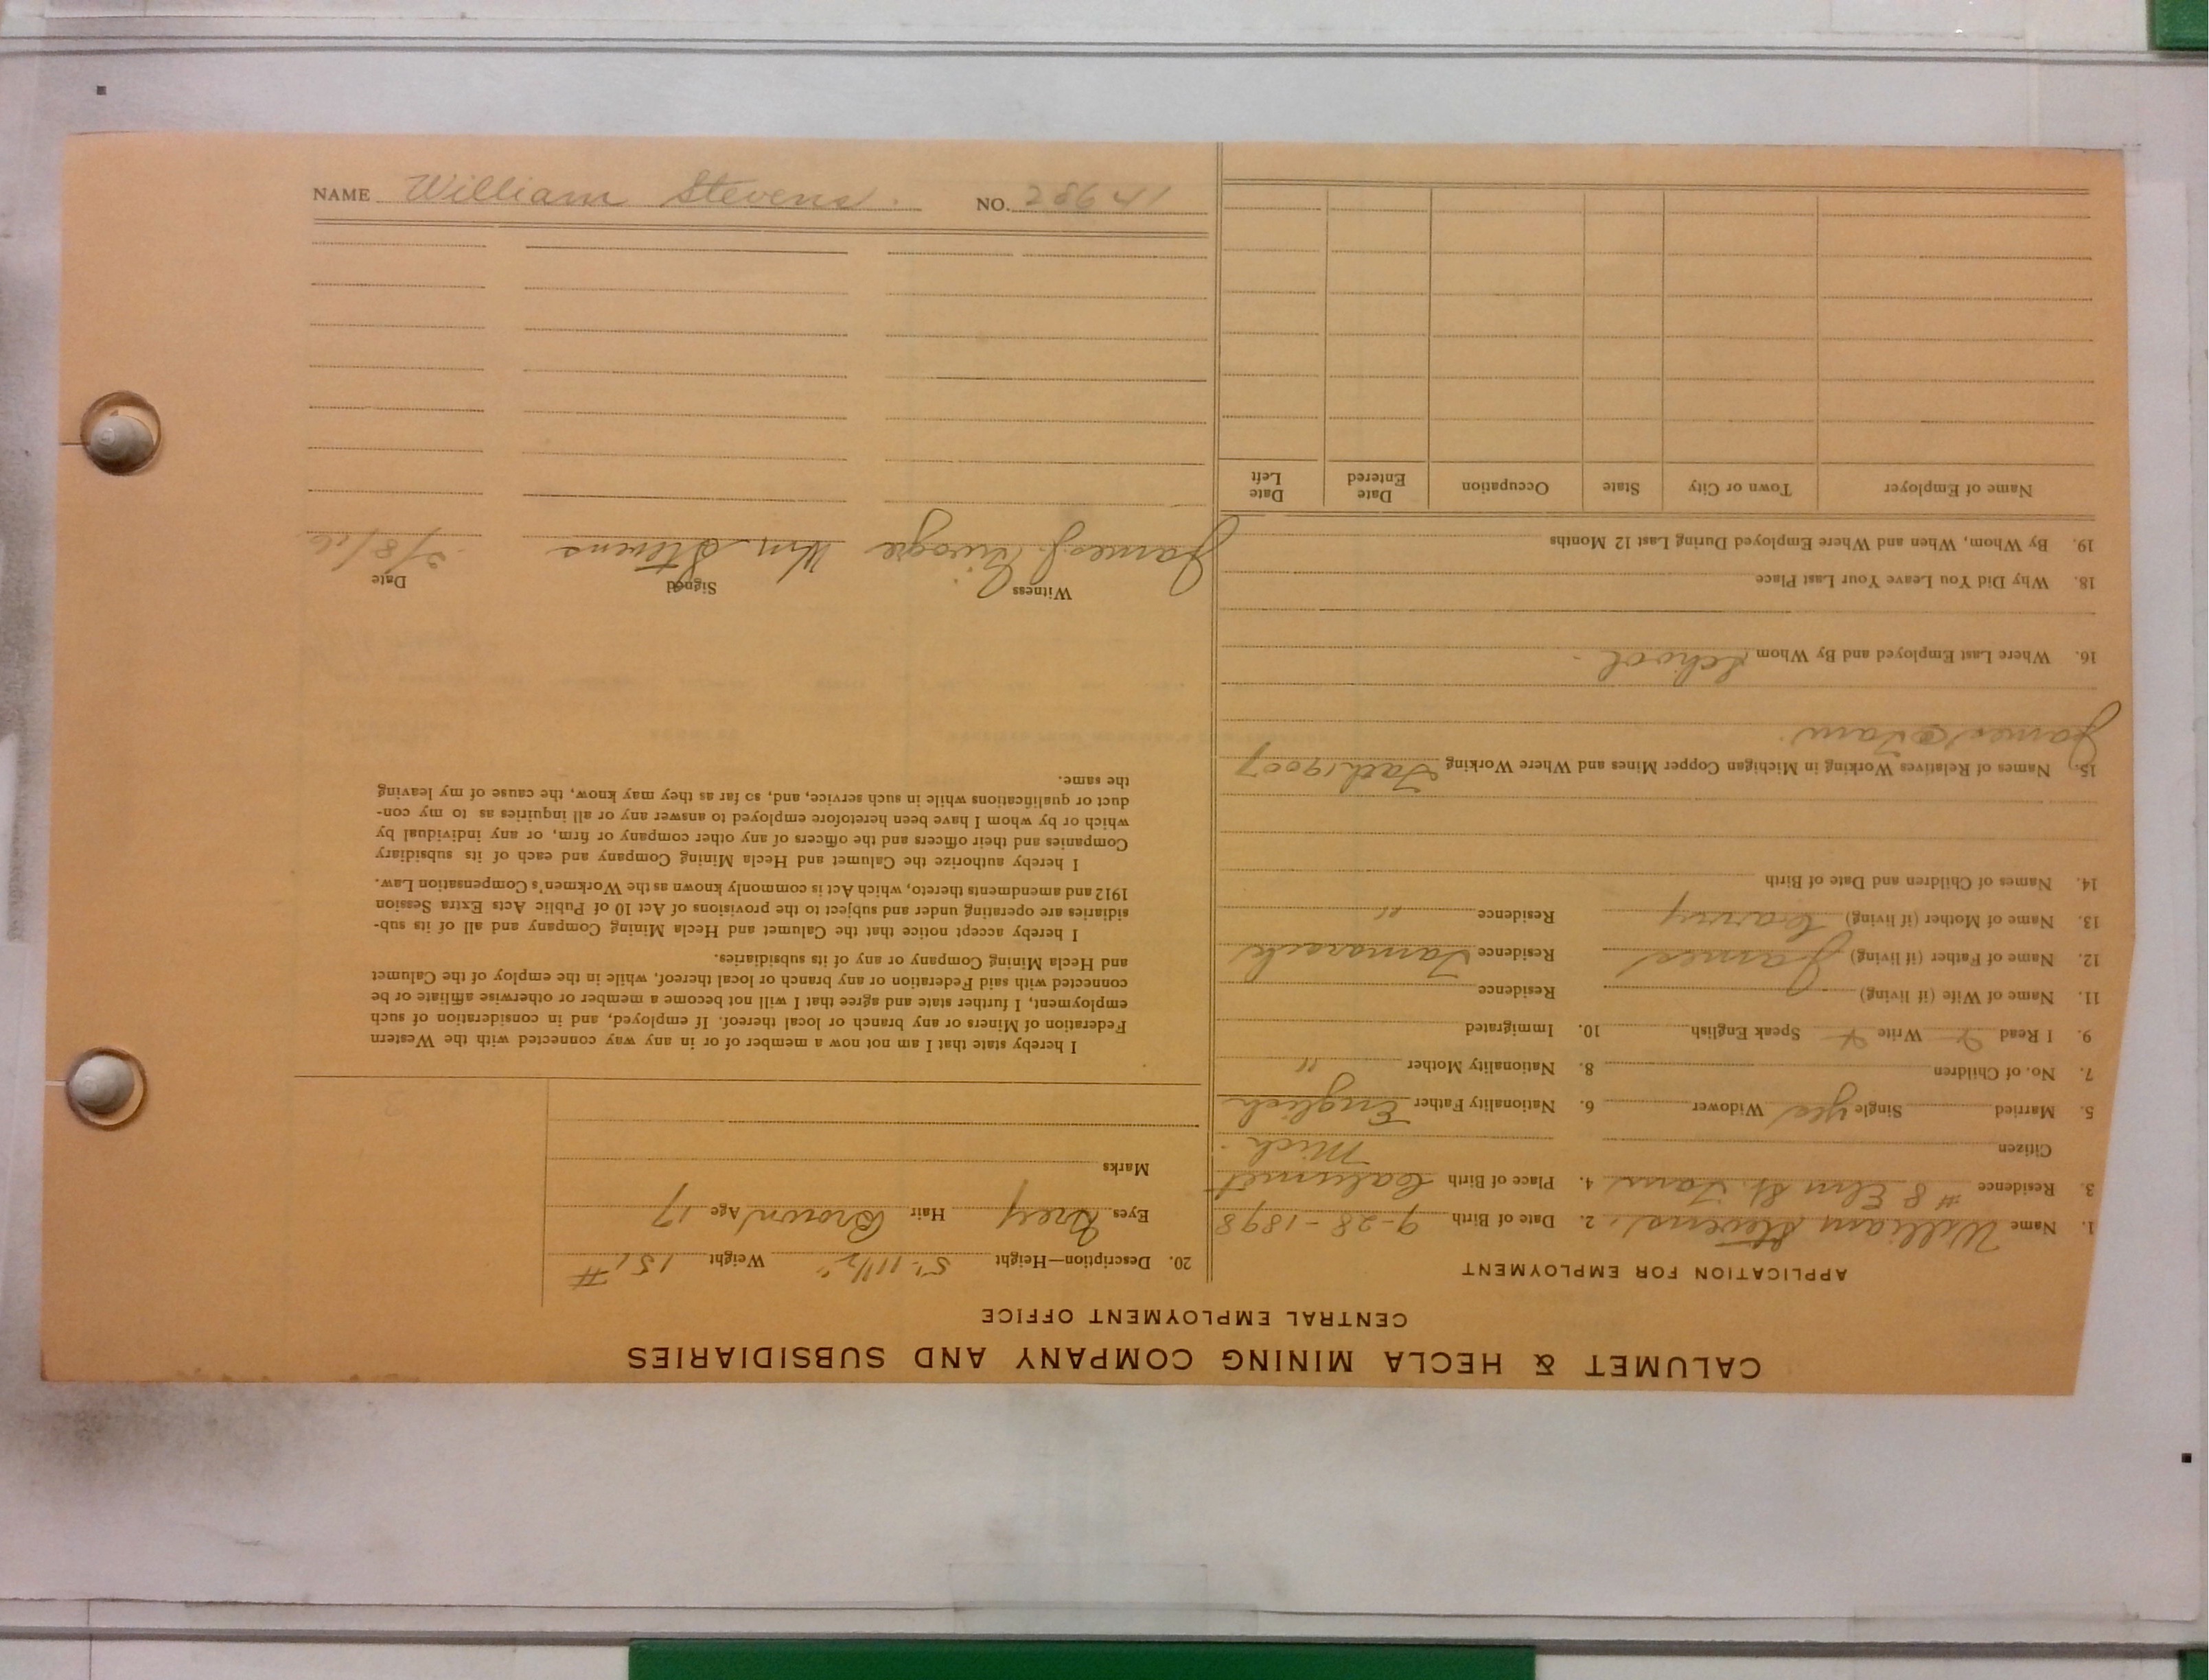 CALUMET & HECLA MINING COMPANY AND SUBSIDIARIES
CENTRAL EMPLOYMENT OFFICE
APPLICATION FOR EMPLOYMENT
1. Name William Stevens. 2. Date of Birth 9-28-1898
3. Residence #8 Elm St. Tam 4. Place of Birth Calumet
Citizen Mich.
5. Married Single yes Widower 6. Nationality Father English
7. No. of Children 8. Nationality Mother "
9. I Read Write Speak English 10. Immigrated
11. Name of Wife (if living) Residence
12. Name of Father (if living) James Residence Tamarack
13. Name of Mother (if living) Residence "
14. Names of Children and Date of Birth
15. Names of Relatives Working in Michigan Copper Mines and Where Working Fath 19007
James Tam.
16. Where Last Employed and By Whom School.
18. Why Did You Leave Your Last Place
19. By Whom, When and Where Employed During Last 12 Months
Name of Employer Town or City State Occupation Date Entered Date Left
20. Description—Height 5'-11 1/2" Weight 151 #
Eyes Grey Hair Brown Age 17
Marks
I hereby state that I am not now a member of or in any way connected with the Western
Federation of Miners or any branch or local thereof. If employed, and in consideration of such
employment, I further state and agree that I will not become a member or otherwise affiliate or be
connected with said Federation or any branch or local thereof, while in the employ of the Calumet
and Hecla Mining Company or any of its subsidiaries.
I hereby accept notice that the Calumet and Hecla Mining Company and all of its sub-
sidiaries are operating under and subject to the provisions of Act 10 of Public Acts Extra Session
1912 and amendments thereto, which Act is commonly known as the Workmen's Compensation Law.
I hereby authorize the Calumet and Hecla Mining Company and each of its subsidiary
Companies and their officers and the officers of any other company or firm, or any individual by
which or by whom I have been heretofore employed to answer any or all inquiries as to my con-
duct or qualifications while in such service, and, so far as they may know, the cause of my leaving
the same.
Witness Signed Date
James J. Wm Stevens 3/8/16
NAME William Stevens. NO. 28641